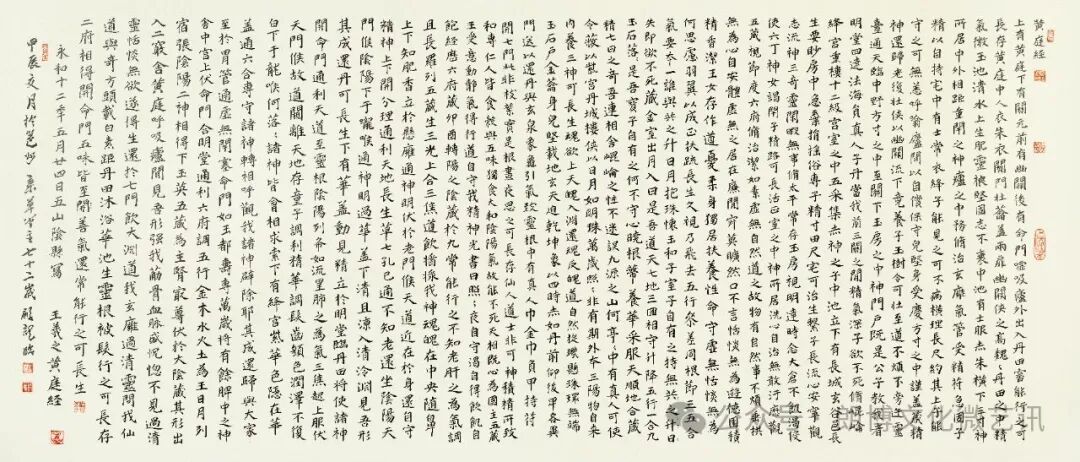 黄庭經
上有黄庭下有關元前有幽關後有命門噓吸廬外出入丹田審能行之可
長存黄庭中人衣朱衣關門壯籥蓋兩扉幽關俠之高魏魏丹田之中精
氣微玉池清水上生肥靈根堅固志不衰中池有士服赤朱橫下三寸神
所居中外相距重閉之神廬之中務脩治玄癰氣管受精符急固子
精以自持宅中有士常衣絳子能見之可不病橫理長尺約其上子能
守之可無恙呼噏廬間以自償保守完堅身受慶方寸之中謹蓋藏精
神還歸老復壯俠以幽闕流下竟養子玉樹令可杖至道不煩不旁迕靈
臺通天臨中野方寸之中至關下玉房之中神門戶既是公子教我者
明堂四達法海員真人子丹當我前三關之間精氣深子欲不死脩崑崙
絳宮重樓十二級宮室之中五采集赤神之子中池立下有長城玄谷邑長
生要眇房中急棄捐搖俗專子精寸田尺宅可治生繫子長流心安寧觀
志流神三奇靈閒暇無事脩太平常存玉房視明達時念大倉不飢渴役
使六丁神女謁閉子精路可長活正室之中神所居洗心自治無敢汙歷觀
五藏視節度六府脩治潔如素虛無自然道之故物有自然事不煩垂拱
無為心自安體虛無之居在廉間寂莫曠然口不言恬惔無為遊德園積
精香潔玉女存作道憂柔身獨居扶養性命守虛無恬惔無為
何思慮羽翼以成正扶疏長生久視乃飛去五行參差同根節三五合
氣要本一誰與共之升日月抱珠懷玉和子室子自有之持無
失即欲不死藏金室出月入日是吾道天七地三回相守升降五行一合九
玉石落落是吾寶子自有之何不守心曉根蒂養華采服天順地合藏
精七日之奇吾連相合崑崙之性不迷誤九源之山何亭亭中有真人可使
令蔽以紫宮丹城樓俠以日月如明珠萬歲照照非有期外本三陽物自來
內養三神可長生魂欲上天魄入淵還魂反魄道自然旋璣懸珠環無端
玉石戶金籥身完堅載地玄天迴乾坤象以四時赤如丹前仰後卑各異
門送以還丹與玄泉象龜引氣致靈根中有真人巾金巾負甲持符
開七門此非枝葉實是根晝夜思之可長存仙人道士非可神積精所致
和專仁人皆食穀與五味獨食太和陰陽氣故能不死天相既心為國主五藏
王受意動靜氣得行道自守我精神光晝日照照夜自守渴自得飲飢自
飽經歷六府藏卯酉轉陽之陰藏於九常能行之不知老肝之為氣調
且長羅列五藏生三光上合三焦道飲醬漿我神魂魄在中央隨鼻
上下知肥香立於懸廱通神明伏於老門候天道近在於身還自守
精神上下開分理通利天地長生草七孔已通不知老還坐陰陽天
門候陰陽下于嚨喉通神明過華蓋下清且涼入清泠淵見吾形
其成還丹可長生下有華蓋動見精立於明堂臨丹田將使諸神
開命門通利天道至靈根陰陽列布如流星肺之為氣三焦起上服伏
天門候故道闚離天地存童子調利精華調髮齒顏色潤澤不復
白下于嚨喉何落落諸神皆會相求索下有絳宮紫華色隱在華
蓋通六合專守諸神轉相呼觀我諸神辟除耶其成還歸與大家
至於胃管通虛無閉塞命門如玉都壽專萬歲將有餘脾中之神
舍中宮上伏命門合明堂通利六府調五行金木水火土為王日月列
宿張陰陽二神相得下玉英五藏為主腎最尊伏於大陰藏其形出
入二竅舍黄庭呼吸廬間見吾形強我筋骨血脈盛怳惚不見過清
靈恬惔無欲遂得生還於七門飲大淵道我玄廱過清靈問我仙
道與奇方頭載白素距丹田沐浴華池生靈根被髮行之可長存
二府相得開命門五味皆至開善氣還常能行之可長生
永和十二年五月廿四日五山陰縣寫 王羲之黄庭經
甲辰 七十二歲
公众号·朗博文化微艺讯